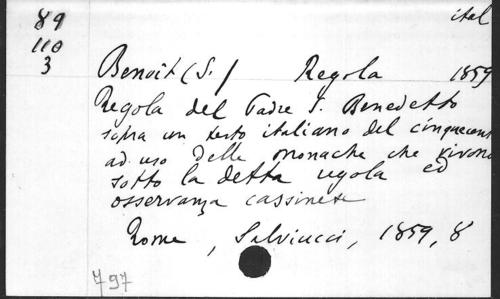 89 ital
110
3
Benoit (S.) Regola 1859
Regola del Padre S. Benedetto
sopra un testo italiano del cinquecent
ad uso delle monache che vivono
sotto la detta regola ed
osservanza cassinese
Rome, Salviucci, 1859, 8
797